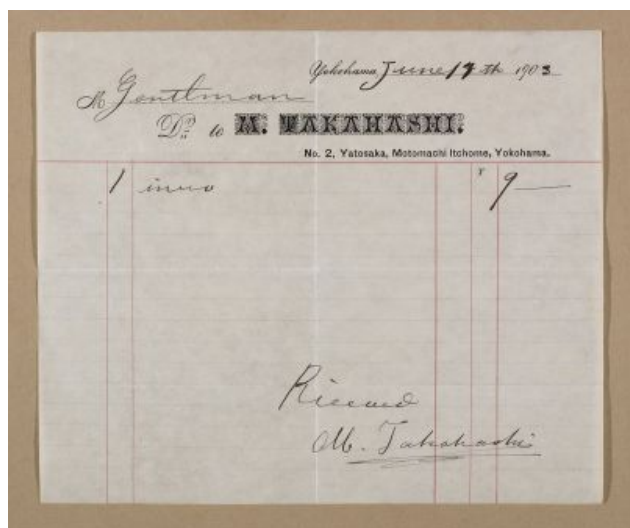 Yokohama, June 17th 1903
M Gentlman
Dr. to M. TAKAHASHI.
No. 2, Yatosaka, Motomachi Itchome, Yokohama.
1 inuro ¥ 9 —
Riceued
M. Takahashi